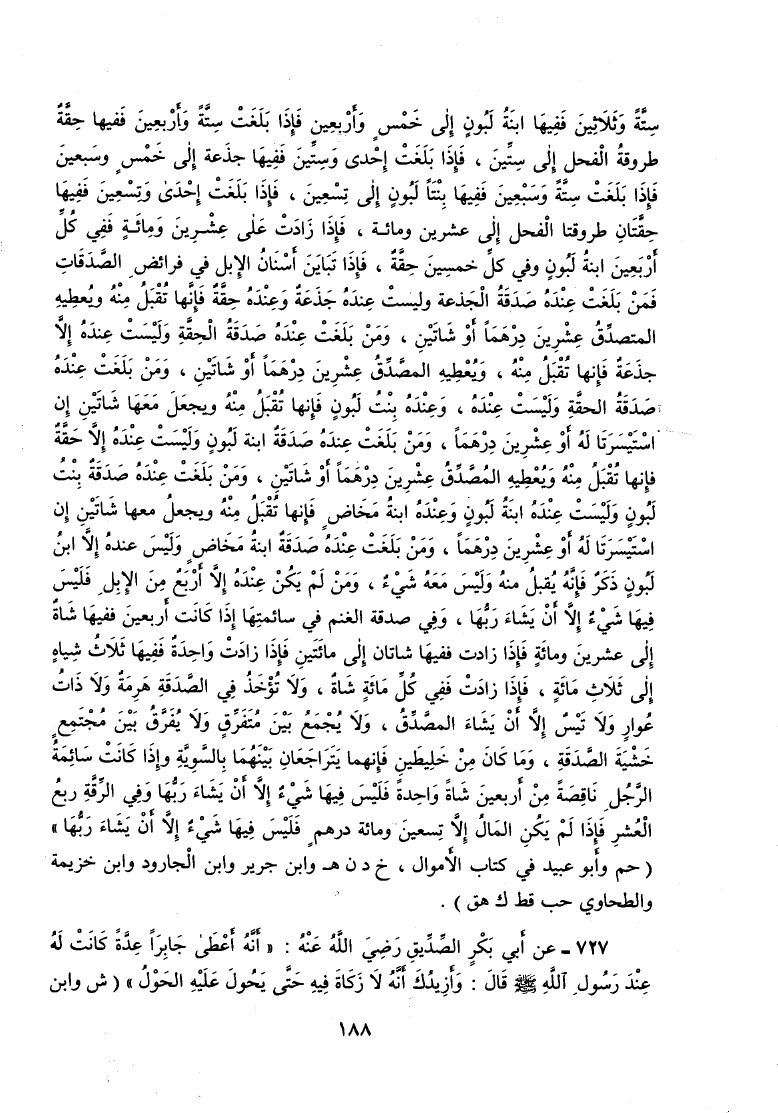 سِتَّةً وَثَلَاثِينَ فَفِيهَا ابنَةُ لَبُونٍ إِلى خَمْسٍ وَأَرْبَعِينِ فَإِذَا بَلَغَتْ سِتَّةً وَأَرْبَعِينَ فَفيها حِقَّةٌ
طروقةُ الْفحل إِلى سِتِّينَ ، فَإِذَا بَلَغَتْ إِحْدى وَسِتِّينَ فَفِيَها جذعة إِلى خَمْسٍ وسَبعينَ
فَإِذَا بَلَغَتْ سِتَّةً وَسَبْعِينَ فَفِيهَا بِنْتَاً لَبُونٍ إِلى تِسْعِينَ ، فَإِذَا بَلَغَتْ إِحْدَىٰ وَتِسْعِينَ فَفِيهَا
حِقَّتَانِ طروقتا الْفحل إِلى عشرين ومائة ، فَإِذَا زَادَتْ عَلى عِشْرِينَ وَمِائَةٍ فَفِي كُلِّ
أَرْبَعِينَ ابنةُ لَبُونٍ وفي كلِّ خمسينَ حِقَّةٌ ، فَإِذَا تَبَايَنَ أَسْنَانُ الإِبل في فرائضِ الصَّدَقَاتِ
فَمَنْ بَلَغَتْ عِنْدَهُ صَدَقَةُ الْجَذعة وليستْ عِندَهُ جَذَعَةٌ وَعِنْدَهُ حِقَّةٌ فَإِنَّها تُقْبَلُ مِنْهُ ويُعطِيهِ
المتصدِّقُ عِشْرِينَ دِرْهَمَاً أَوْ شَاتَيْنِ ، وَمَنْ بَلَغَتْ عِنْدَهُ صَدَقَةُ الْحِقَّةِ وَلَيْسَتْ عِندَهُ إِلَّا
جذَعَةٌ فَإِنها تُقْبَلُ مِنْهُ ، وَيُعْطِيهِ المصَدِّقُ عِشْرِينَ دِرْهَمَاً أَوْ شَاتَيْنِ ، وَمَنْ بَلَغَتْ عِنْدَهُ
صَدَقَةُ الحقَّةِ وَلَيْسَتْ عِنْدَهُ ، وَعِنْدَهُ بِنْتُ لَبُونٍ فَإِنها تُقْبَلُ مِنْهُ ويجعلَ مَعَهَا شَاتَيْنِ إِن
اسْتَيْسَرَتَا لَهُ أَوْ عِشْرِينَ دِرْهَمَاً ، وَمَنْ بَلَغَتْ عِندَهُ صَدَقَةُ ابنة لَبُونٍ وَلَيْسَتْ عِنْدَهُ إِلَّا حَقَّةٌ
فإِنها تُقْبَلُ مِنْهُ وَيُعْطِيهِ المُصَّدِّقُ عِشْرِينَ دِرْهَمَاً أَوْ شَاتَيْنِ ، وَمَنْ بَلَغَتْ عِنْدَهُ صَدَقَةُ بِنْتُ
لَبُونٍ وَلَيْسَتْ عِنْدَهُ ابنَةُ لَبُونٍ وَعِنْدَهُ ابنةُ مَخَاضٍ فَإِنها تُقْبَلُ مِنْهُ ويجعلُ معها شَاتَيْنِ إِن
اسْتَيْسَرَتَا لَهُ أَوْ عِشْرِينَ دِرْهَمَاً ، وَمَنْ بَلَغَتْ عِنْدَهُ صَدَقَةُ ابنةُ مَخَاضٍ وَلَيْسَ عندهُ إِلَّا ابنُ
لَبُونٍ ذَكَرٌ فَإِنَّهُ يُقبلُ منهُ وَلَيْسَ مَعَهُ شَيْءٌ ، وَمَنْ لَمْ يَكُنْ عِنْدَهُ إِلَّا أَرْبَعٌ مِنَ الإِبِلِ فَلَيْسَ
فِيهَا شَيْءٌ إِلَّا أَنْ يَشَاءَ رَبُّهَا ، وَفِي صدقة الغنم في سائمتِهَا إِذَا كَانَت أَربعينَ ففيهَا شَاةٌ
إِلى عشرينَ ومائةٍ فَإِذَا زادت ففيهَا شاتان إِلى مائَتَينِ فَإِذَا زادَتْ وَاحِدَةً فَفِيَها ثَلَاثُ شِياهٍ
إِلى ثَلَاثِ مَائَةٍ ، فَإِذَا زادَتْ فَفِي كُلِّ مَائَةٍ شَاةٌ ، وَلَا تُؤْخَذُ فِي الصَّدَقَةِ هَرِمَةٌ وَلَا ذَاتُ
عُوارٍ وَلَا تَيْسٌ إِلَّا أَنْ يَشَاءَ المصَدِّقُ ، وَلَا يُجْمَعُ بَيْنَ مُتَفَرِّقٍ وَلَا يُفَرَّقُ بَيْنَ مُجْتَمِعٍ
خَشْيَةَ الصَّدَقَةِ ، وَمَا كَانَ مِنْ خَلِيطَينِ فَإِنهما يَتَرَاجَعَانِ بَيْنَهُمَا بِالسَّوِيَّةِ وإِذَا كَانَتْ سَائِمَةُ
الرَّجُلِ نَاقِصَةً مِنْ أَربعينَ شَاةً وَاحِدةً فَلَيْسَ فِيهَا شَيْءٌ إِلَّا أَنْ يَشَاءَ رَبُّهَا وَفِي الرِّقَّةِ ربعُ
الْعُشرِ فَإِذَا لَمْ يَكُنِ المَالُ إِلَّا تِسعينَ ومائة درهمٍ فَلَيْسَ فِيهَا شَيْءٌ إِلَّا أَنْ يَشَاءَ رَبُّهَا »
( حم وأَبو عبيد في كتاب الأَموال ، خ د ن هـ وابن جرير وابن الْجارود وابن خزيمة
والطحاوي حب قط ك هق ) .
٧٢٧ ـ عن أَبي بَكْرٍ الصِّدِّيقِ رَضِيَ اللَّهُ عَنْهُ : « أَنَّهُ أَعْطَىٰ جَابِرَاً عِدَّةً كَانَتْ لَهُ
عِنْدَ رَسُولِ اللَّهِ ﷺ قَالَ : وَأَزِيدُكَ أَنَّهُ لَا زَكَاةَ فِيهِ حَتَّى يَحُولَ عَلَيْهِ الحَوْلُ » ( ش وابن
١٨٨